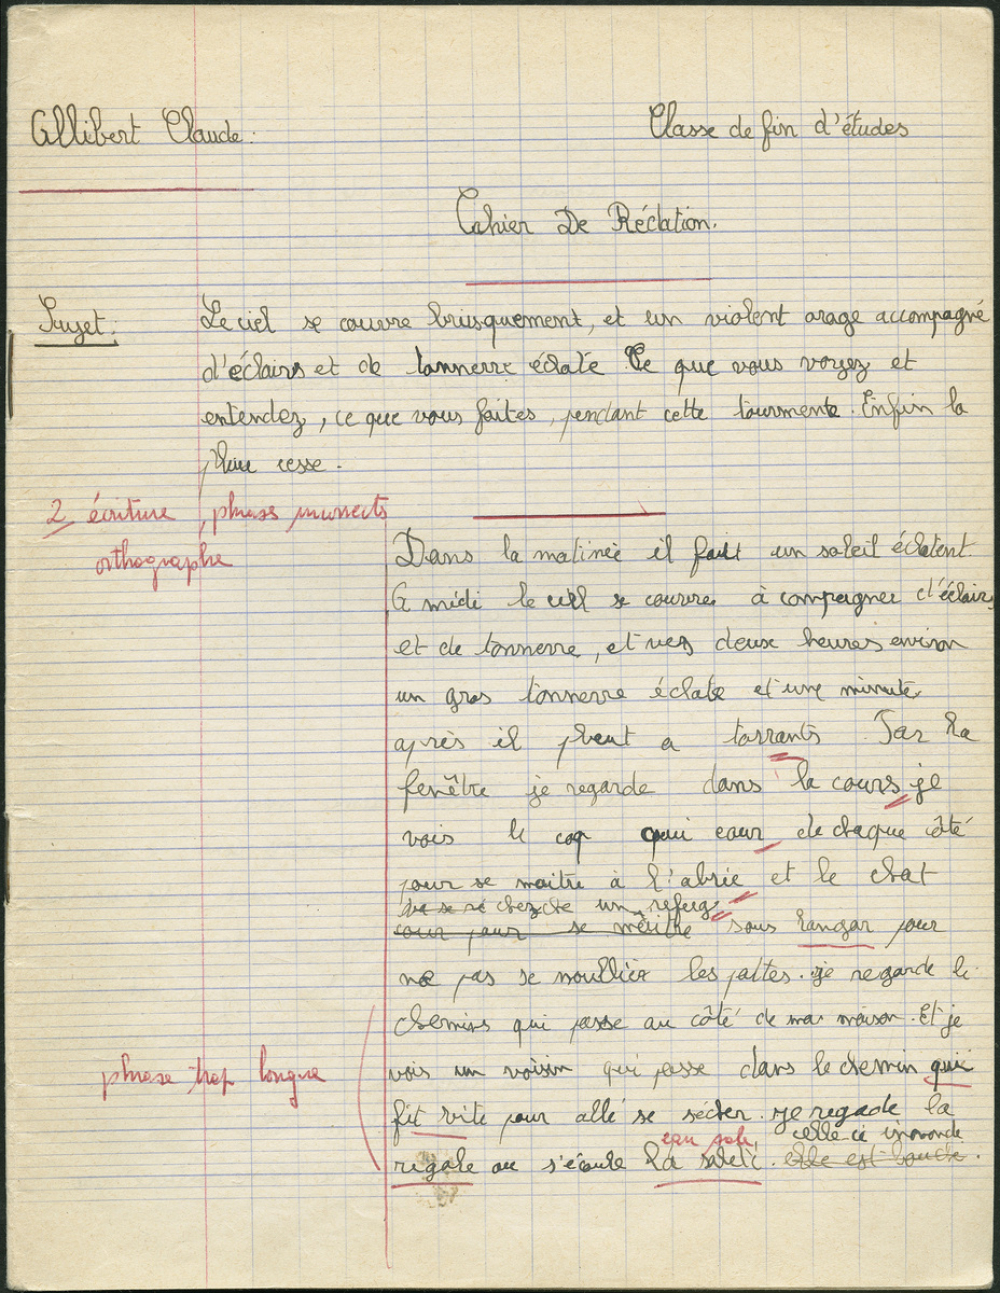 Allibert Claude.
Classe de fin d'études
Cahier De Rédation.
Sujet:
Le ciel se couvre brusquement, et un violent orage accompagné
d'éclairs et de tonnerre éclaté. Ce que vous voyez et
entendez, ce que vous faites, pendant cette tourmente. Enfin la
pluie cesse.
2 écriture, phrases incorrects
orthographe
Dans la matinée il fait un soleil éclatent.
A midi le ciel se couvre à compagner d'éclairs
et de tonnerre, et vers deux heures environ
un gros tonnerre éclate et une minute
après il pleut a torrants. Par la
fenêtre je regarde dans la cours je
vois le coq qui cour de chaque côté
pour se maitre à l'abrie et le chat
cherche un refuge
pour se sous hangar pour
ne pas se moullier les pattes. je regarde le
chemins qui passe au côté de ma maison. Et je
vois un voisin qui passe dans le chemin qui
phrase trop longue
fit vite pour allé se sécher. je regade la
eau sale celle ci innonde
rigole ou s'écoule la saleté. elle est bouché.